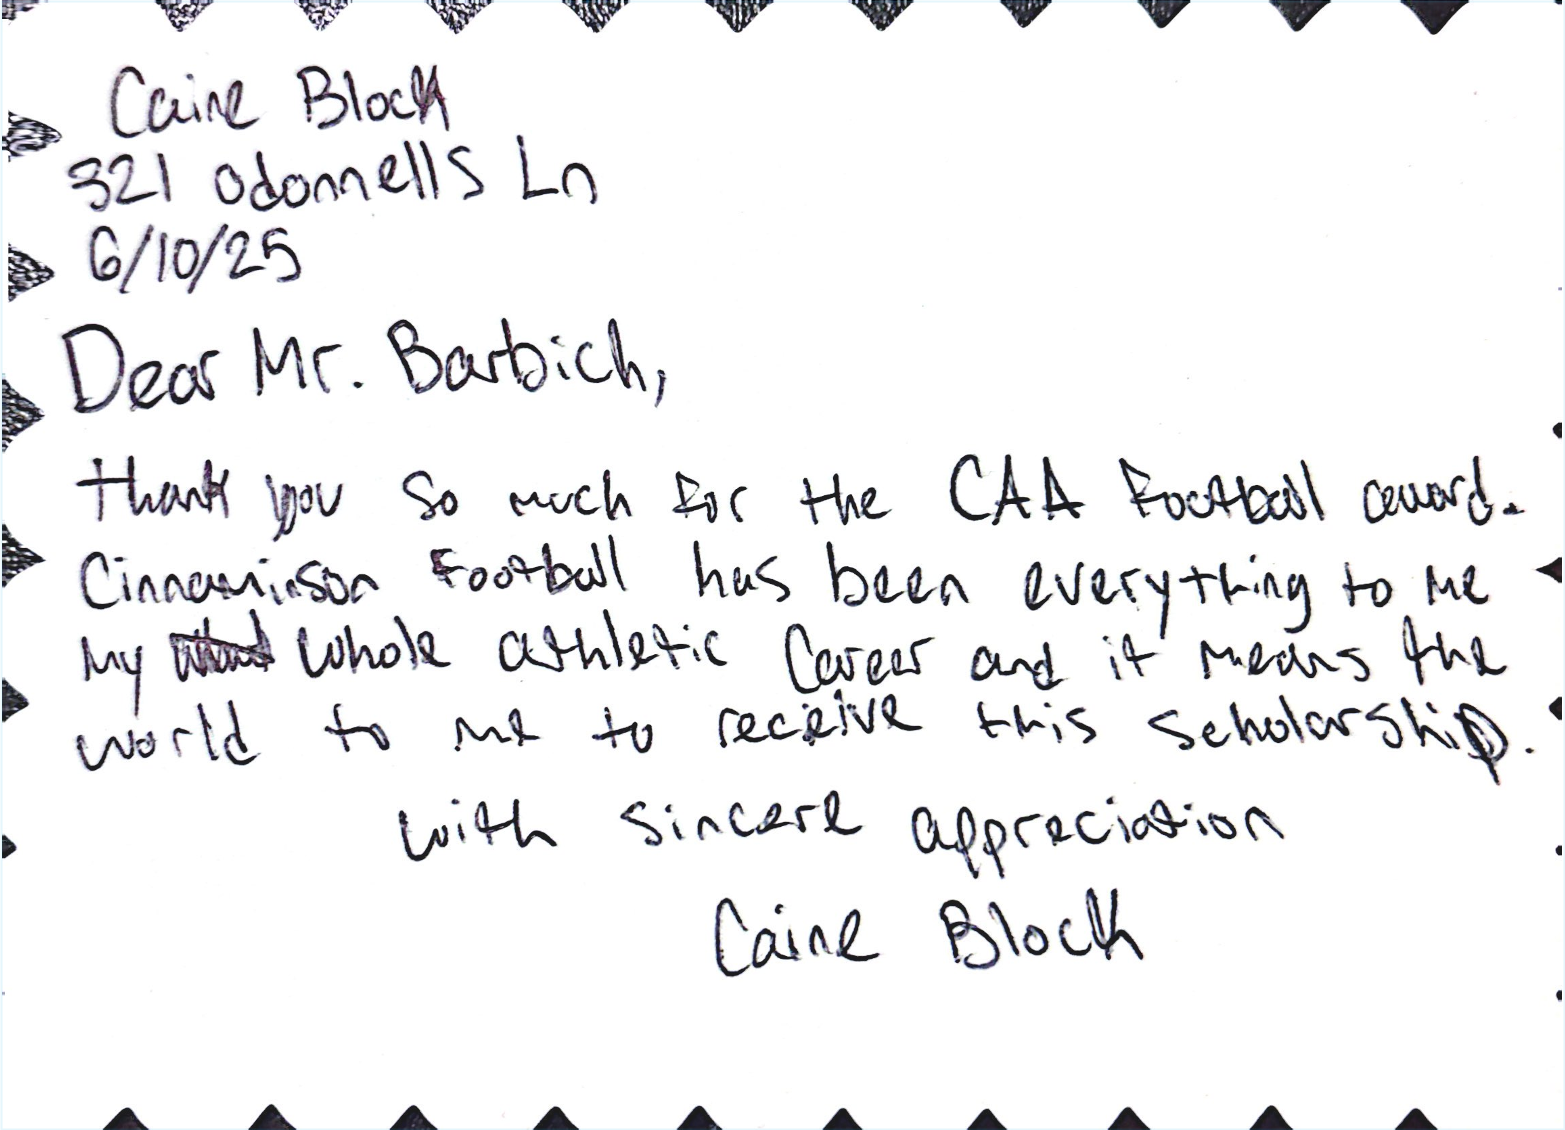 Caine Block
321 Odonnells Ln
6/10/25
Dear Mr. Barbich,
thank you so much for the CAA Football award.
Cinnaminson Football has been everything to me
my whole athletic Career and it means the
world to me to receive this scholarship.
with sincere appreciation
Caine Block